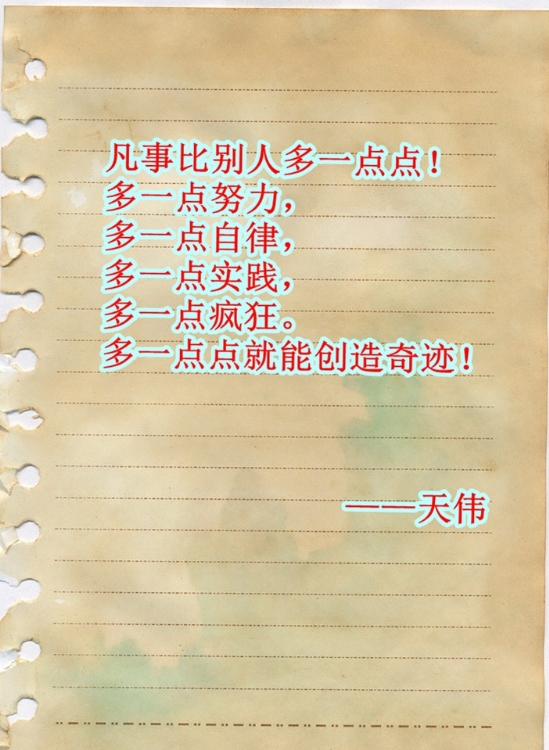 凡事比别人多一点点！
多一点努力，
多一点自律，
多一点实践，
多一点疯狂。
多一点点就能创造奇迹！
——天伟